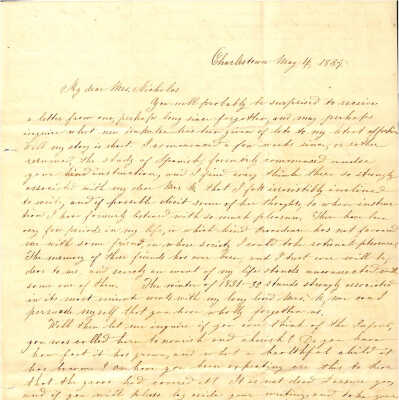 Charlestown May 4, 1889.
My dear Mrs. Nicholas
You will probably be surprised to receive
a letter from one, perhaps long since forgotten, and may perhaps
inquire what new impulse has been given of late to my latent affection
Well my story is short. I commenced a few weeks since, or rather
resumed, the study of Spanish, formerly commenced under
your kind instruction, and I find every think there so strongly
associated with my dear Mrs. N. that I felt irresistibly inclined
to write, and if possible elicit some of her thoughts, to whose instruc
tions I have formerly listened with so much pleasure. There have been
very few periods in my life, in which kind Providence has not favored
me with some friend, in whose society I could take rational pleasure
The memory of these friends has ever been, and I trust ever will be,
dear to me, and scarcely an event of my life stands unconnected with
some one of them. The winter of 1831-32 stands strongly associated
in its most minute work with my long loved Mrs. N, nor can I
persuade myself that you have wholly forgotten us.
Will then let me inquire if you ever think of the
you was called here to nourish and cherish? Do you know
how fast it has grown, and what a healthful child it
has become I can hear you been expecting ere this to hear
that the grave had covered it! It is not dead I assure you
and if you will please lay aside your writing, and take your